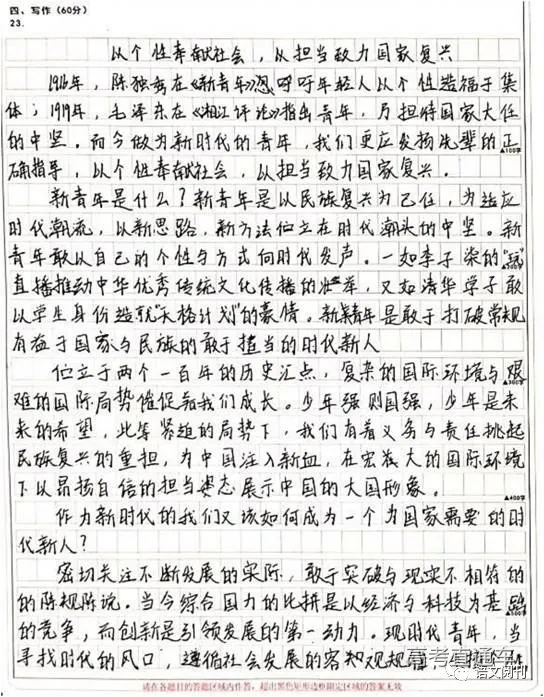 四、写作（60分）
23.
以个性奉献社会，以担当致力国家复兴
1916年，陈独秀在《新青年》呼吁年轻人以个性造福于集
体；1919年，毛泽东在《湘江评论》指出青年，乃担特国家大任
的中坚。而今做为新时代的青年，我们更应发扬先辈的正
▲100字
确指导，以个性奉献社会，以担当致力国家复兴。
新青年是什么？新青年是以民族复兴为己任，为适应
时代潮流，以新思路，新方法伫立在时代潮头的中坚。新
青年敢以自己的个性与方式向时代发声。一如李子柒的
▲200字
直播推动中华优秀传统文化传播的壮举，又如清华学子敢
以学生身份造就"天格计划"的豪情。新青年是敢于打破常规
有益于国家与民族的敢于担当的时代新人
伫立于两个一百年的历史汇点，复杂的国际环境与艰
▲300字
难的国际局势催促着我们成长。少年强则国强，少年是未
来的希望，此等紧迫的局势下，我们有着义务与责任挑起
民族复兴的重担，为中国注入新血，在宏大的国际环境
下以昂扬自信的担当姿态展示中国的大国形象。
▲400字
作为新时代的我们又该如何成为一个为国家需要的时
代新人？
密切关注不断发展的实际，敢于突破与现实不相符的
的陈规陈说。当今综合国力的比拼是以经济与科技为基础
的竞争，而创新是引领发展的第一动力。现时代青年，当
寻找时代的风口，遵循社会发展的客观规
高考直通车
语文月刊
请在各题目的答题区域内作答，超出黑色矩形边框限定区域的答案无效